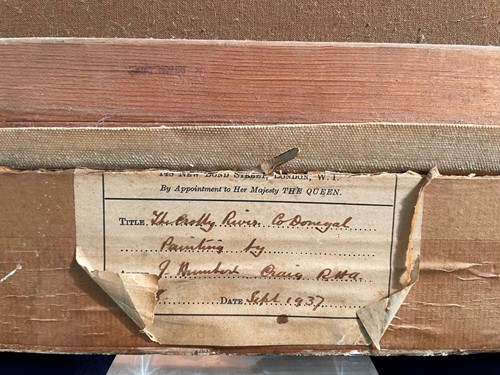 148 NEW BOND STREET, LONDON, W.1.
By Appointment to Her Majesty THE QUEEN.
TITLE The Crolly River Co Donegal
Painting by
J. Humbert Craig RHA
DATE Sept 1937